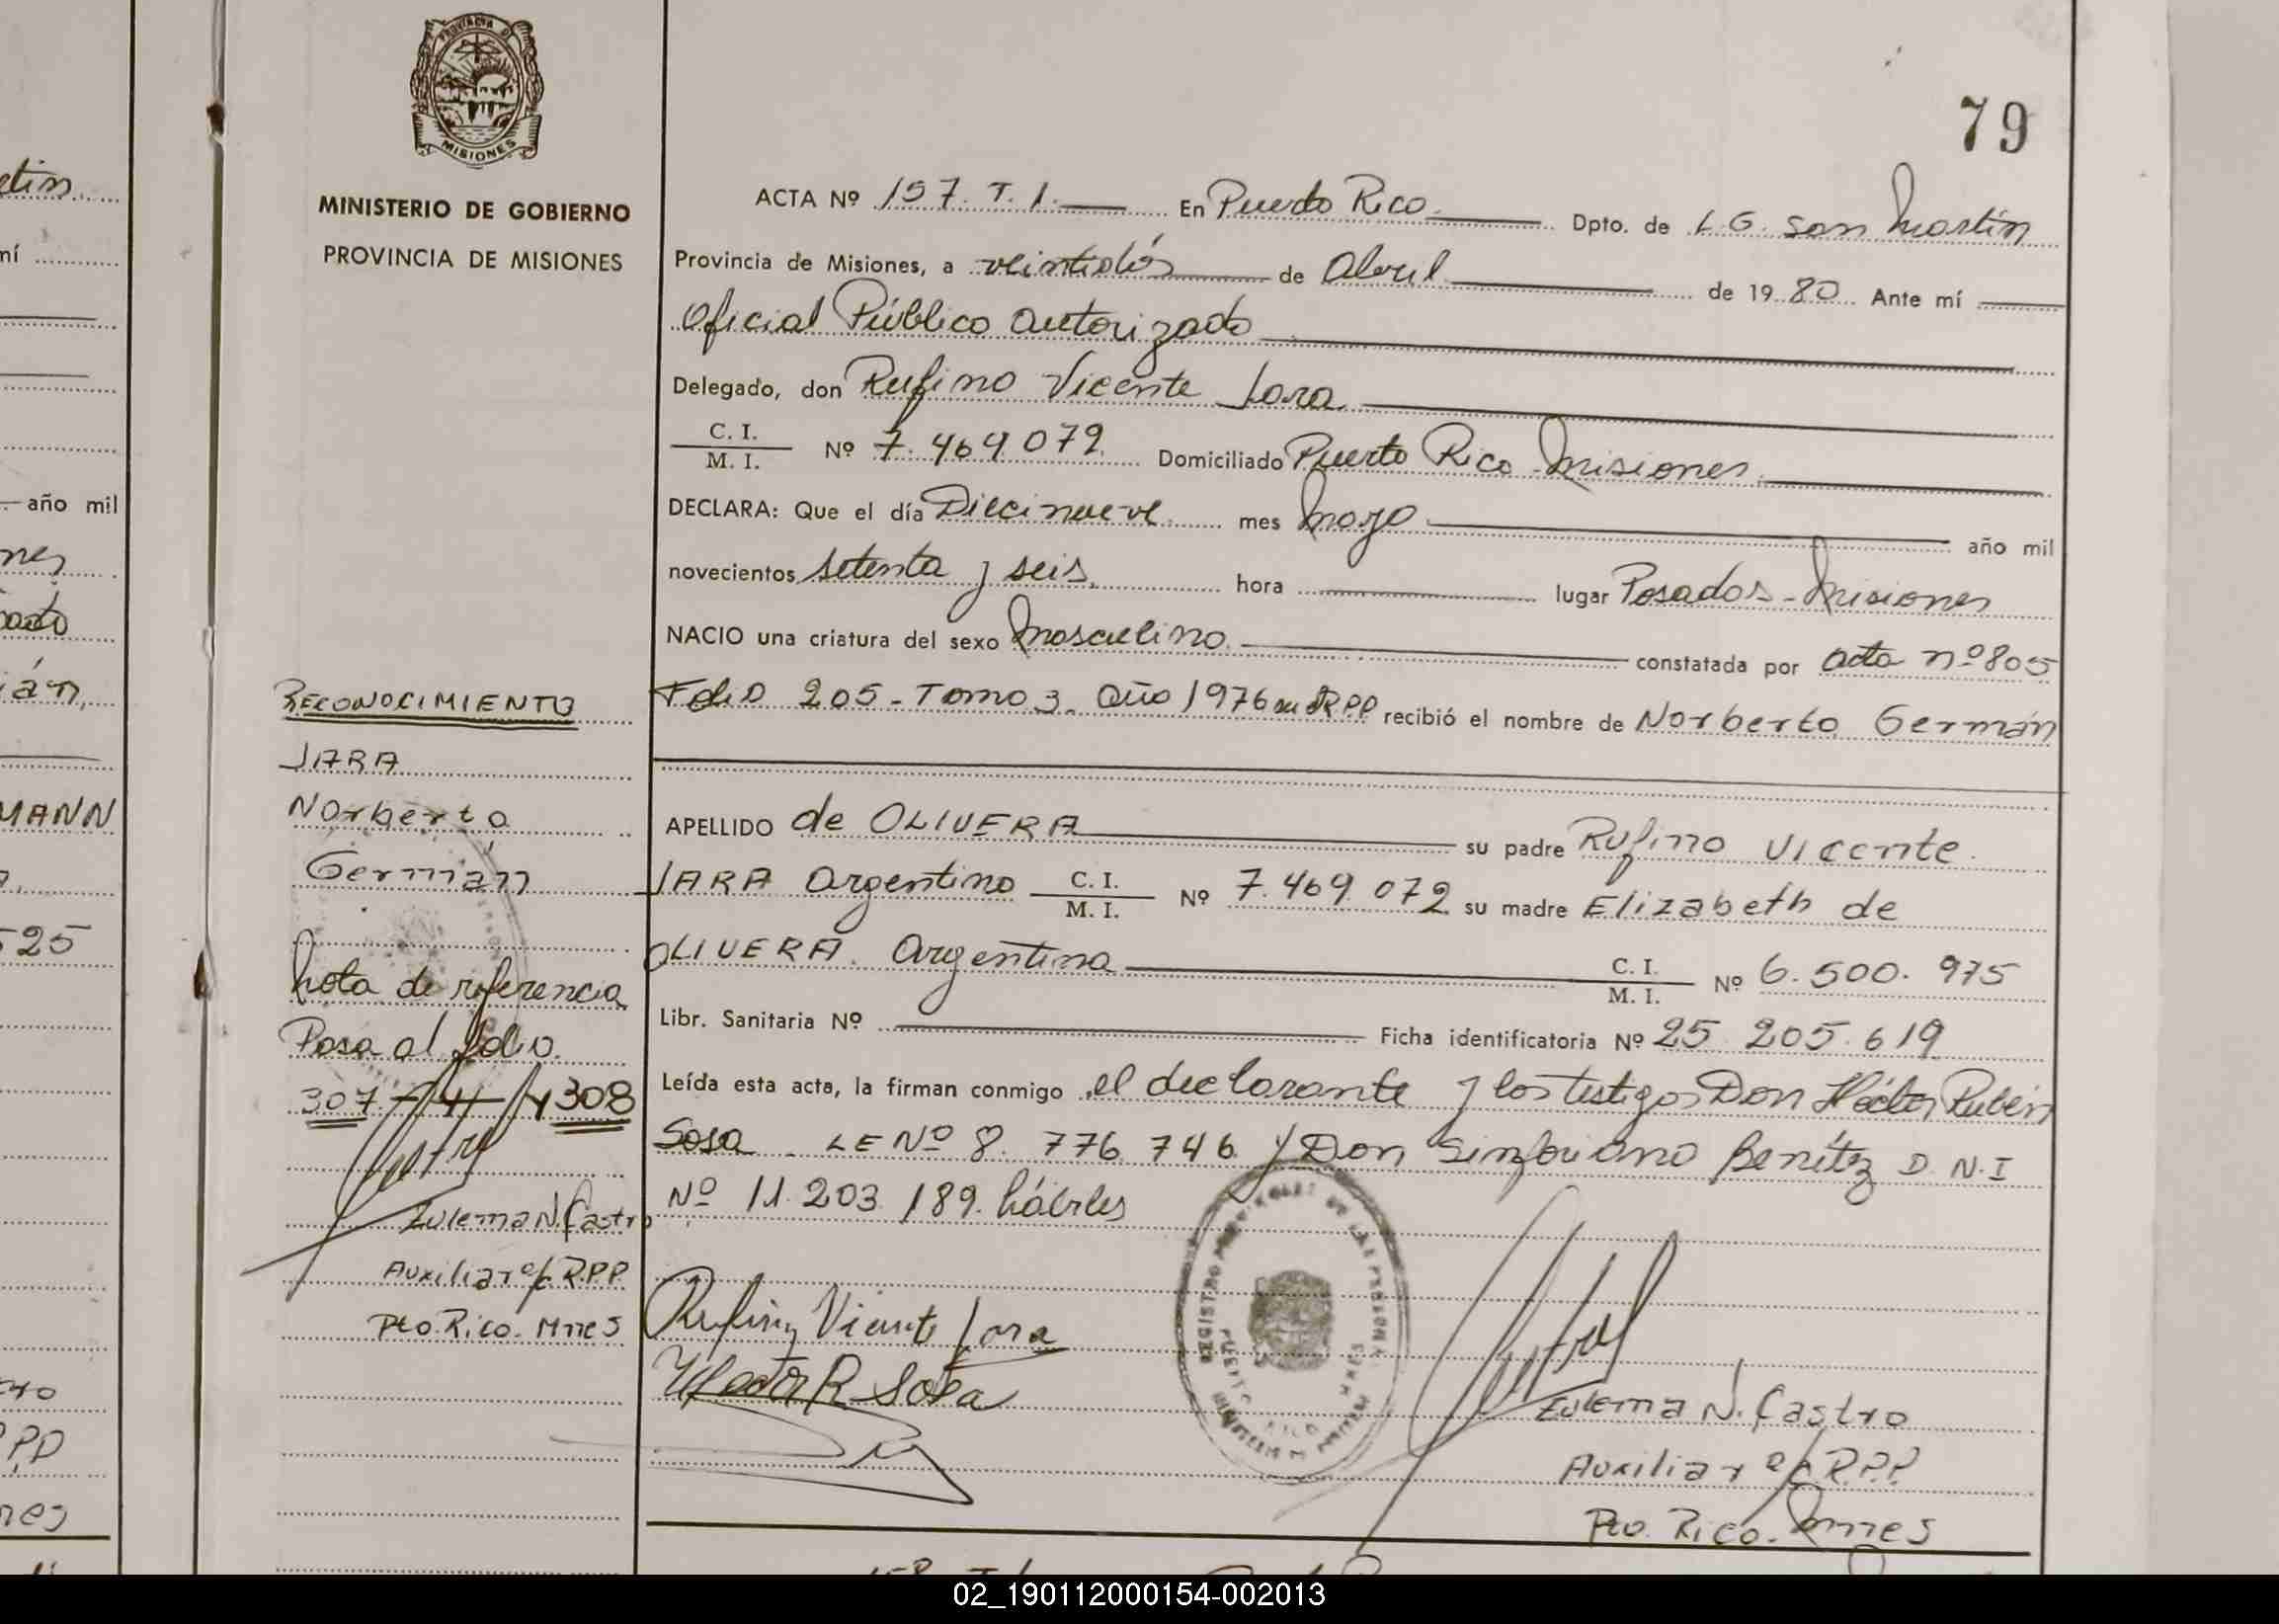 PROVINCIA DE
MISIONES
MINISTERIO DE GOBIERNO
PROVINCIA DE MISIONES
79
ACTA Nº 157. T. 1. En Puerto Rico Dpto. de L.G. San Martín
Provincia de Misiones, a veintidós de Abril de 1980 Ante mí
Oficial Público autorizado
Delegado, don Rufino Vicente Jara
C. I.
M. I. Nº 7.469.072 Domiciliado Puerto Rico Misiones
DECLARA: Que el día Diecinueve mes Mayo año mil
novecientos setenta y seis hora lugar Posadas - Misiones
NACIO una criatura del sexo Masculino constatada por acta nº 805
Folio 205 - Tomo 3. Año 1976 RPP recibió el nombre de Norberto Germán
APELLIDO de OLIVERA su padre Rufino Vicente
JARA Argentino C. I.
M. I. Nº 7.469.072 su madre Elizabeth de
OLIVERA. Argentina C. I.
M. I. Nº 6.500.975
Libr. Sanitaria Nº Ficha identificatoria Nº 25.205.619
Leída esta acta, la firman conmigo el declarante y los testigos Don Héctor Rubén
Sosa - LE Nº 8.776.746 y Don Sinforiano Benítez D.N.I
Nº 11.203.189. hábiles
Rufino Vicente Jara
Hector R Sosa
Zulema N. Castro
Auxiliar a/c R.P.P.
Pto. Rico. Mnes
RECONOCIMIENTO
JARA
Norberto
Germán
Nota de referencia
Pasa al folio
307 y 308
Zulema N. Castro
Auxiliar a/c R.P.P.
Pto Rico. Mnes
año mil
MANN
525
02_190112000154-002013